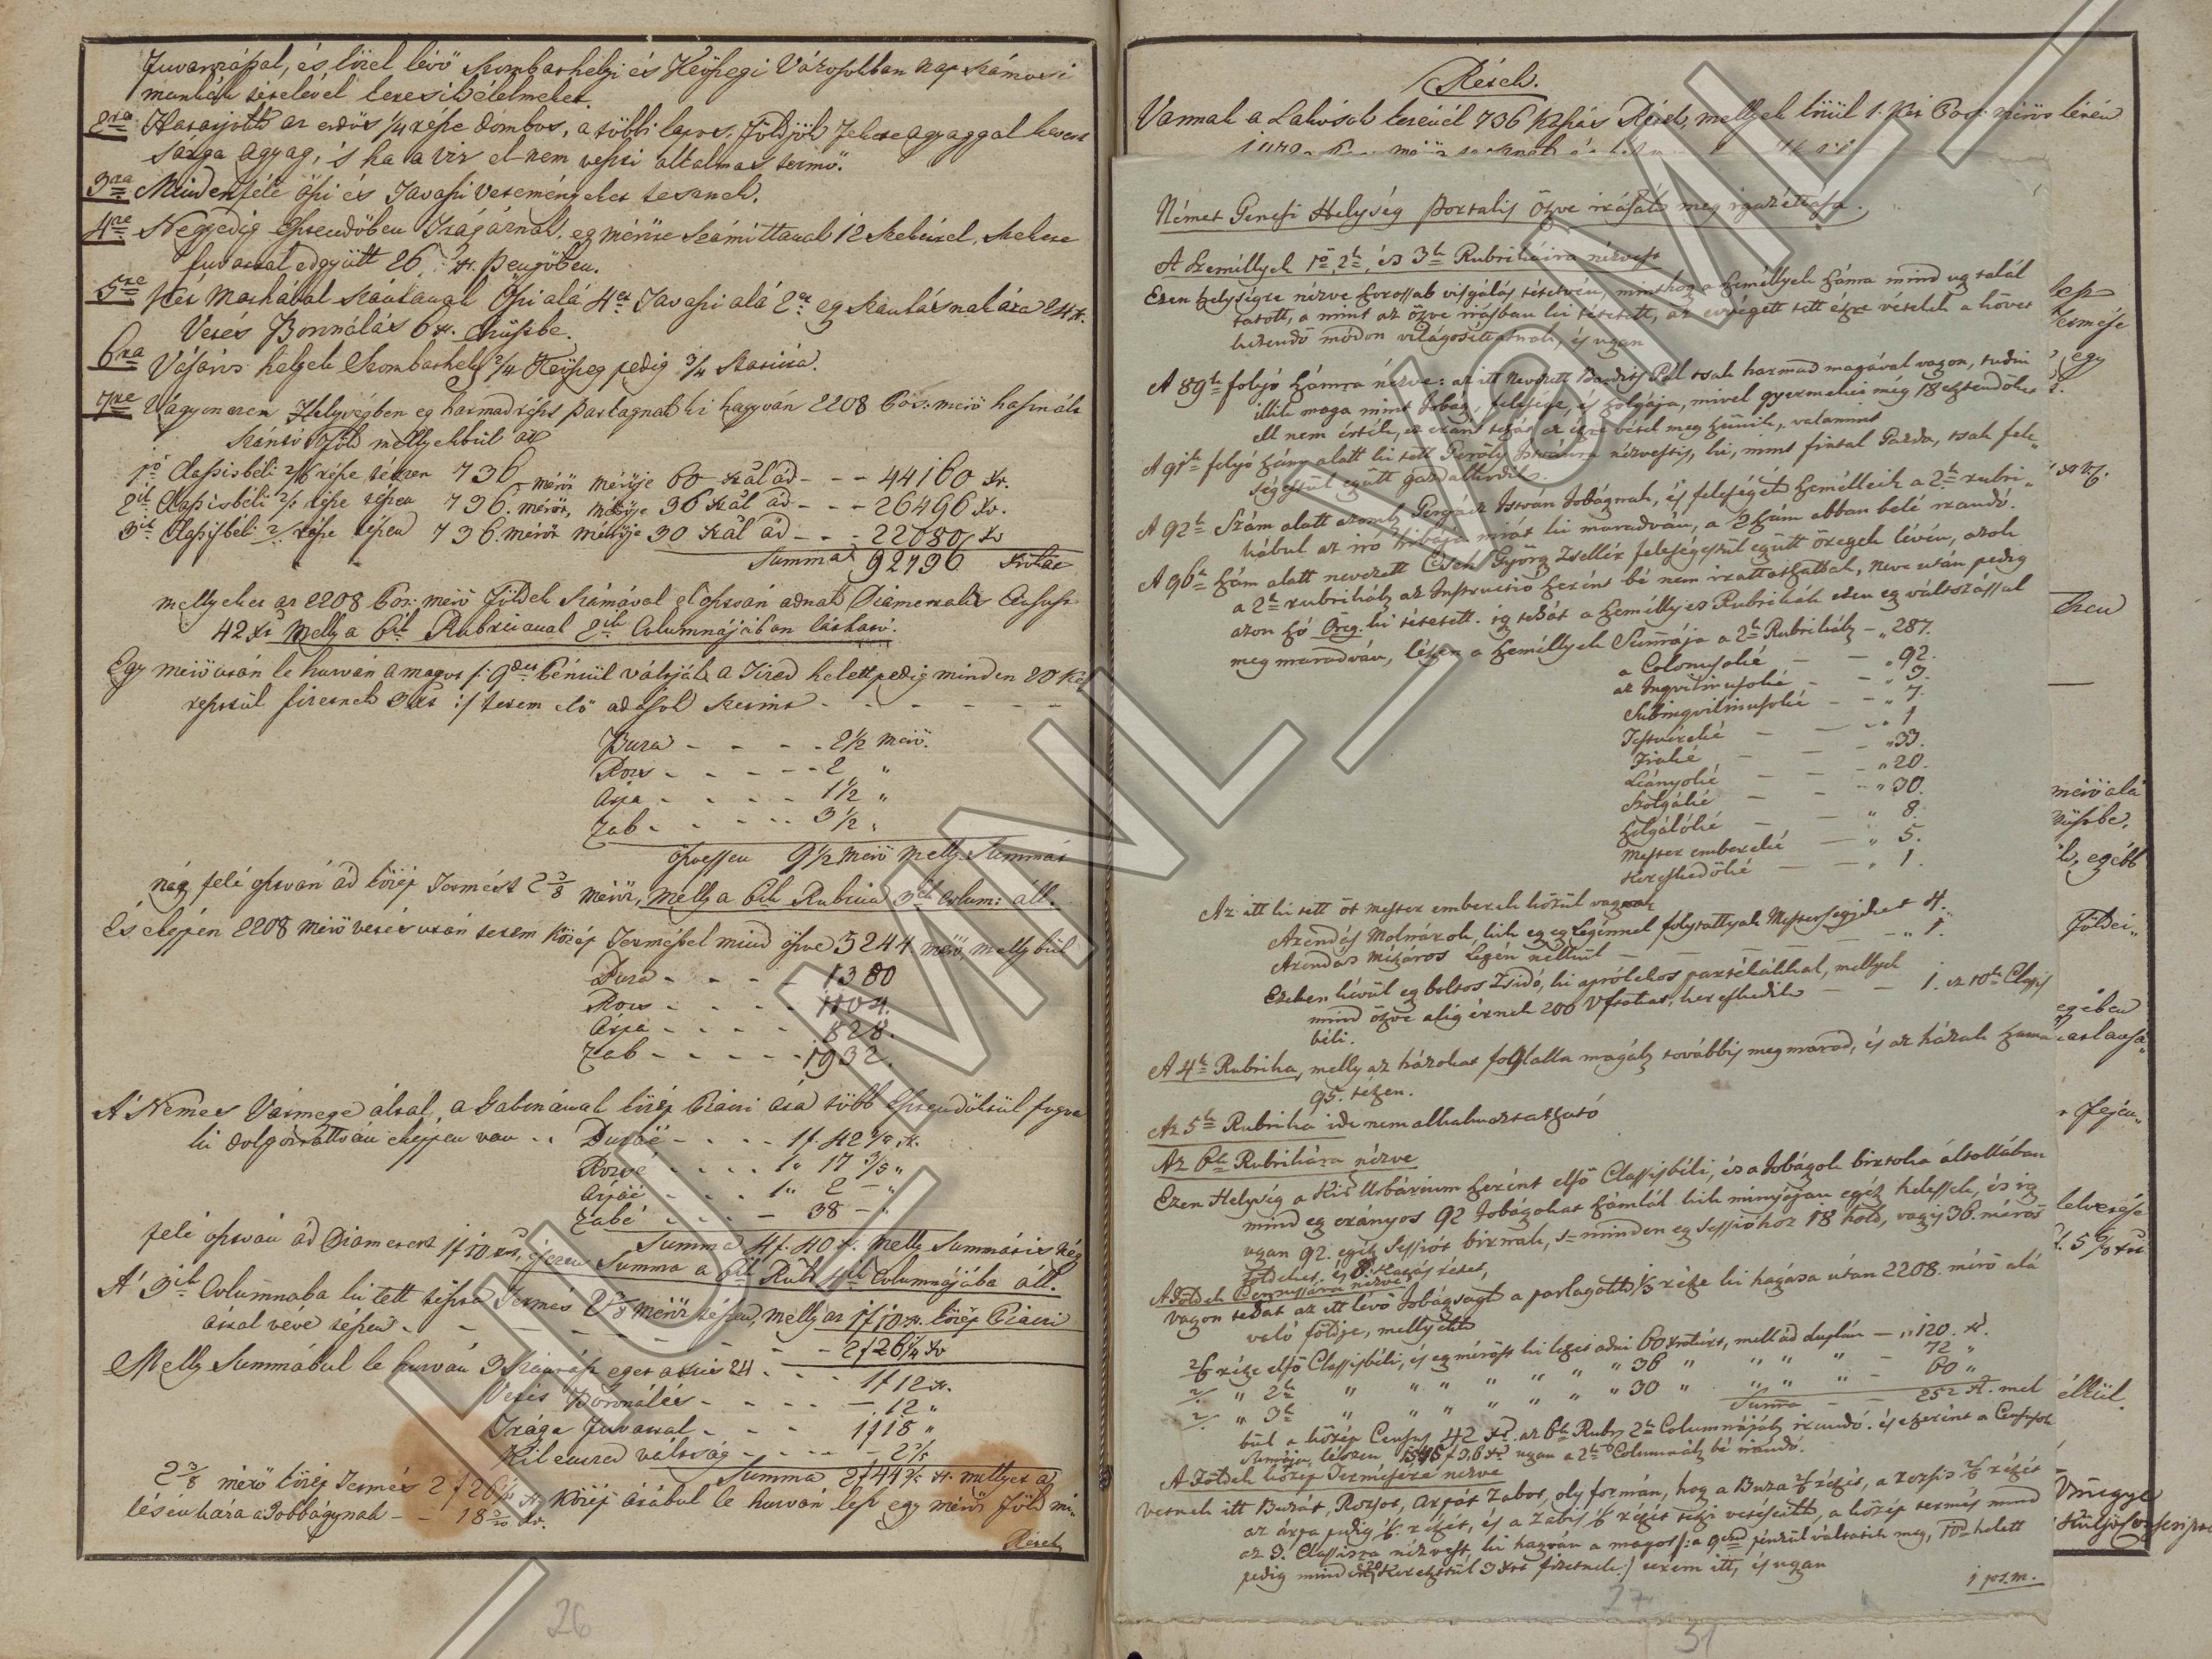 fuvarozással, és közel lévö Szombathelyi és Kőszegi Városokban nap számosi
munkák tételével keresik élelmeket.
2ra Határjokk az erdös 1/4 része dombos, a többi lapos, földjök fekete agyaggal kevert
sarga agyag, 's ha a viz el nem veszi alkalmas termö.
3ra Mindenféle öszi és Tavaszi Veteményeket tesznek.
4re Negyedig Esztendöben Trágyáznak, egy mérőre Számittanak 12 Szekérrel, Szekere
fuvarral edgyütt 26 xr. pengöben.
5re Két Marhával Szántanak Öszi alá 4er Tavaszi alá 2er egy Szántásnak ára 24 x.
Vetés Boronálás 6 x. Ezüstbe.
6ra Vásáros helyek Szombathely 2/4 Kőszeg pedig 3/4 Statióra.
7re Vagyon ezen Helységben eg harmad részt parlagnak ki hagyván 2208 Pos: mérö használt
Szántó Föld mellyekbül az
1ö Classisbéli 2/6 része tészen 736 mérőt mérője 60 xrál ád - - - 44160 xr.
2ik Classisbéli 2/6 része tészen 736. mérőt, mérője 36 xrál ád - - - 26496 xr.
3ik Classisbéli 2/6 része tészen 736. mérőt mérője 30 xrál ád - - - 22080 xr
Summa 92736 xrokat
mellyeket az 2208 Pos: mérö Földek Számával el osztván adnak Diametralis Censust
42 xr melly a 6ik Rubricanak 2ik Columnájában látható.
Egy mérö után le huzván a magvat s: 9det pénzül váltják a Tized helett pedig minden 20 Ke
resztül fizetnek 3 xrt :/ terem elö adások szerint - - - - - -
Buza - - - - 2 1/2 Mérö.
Rozs - - - - 2 "
Árpa - - - - 1 1/2 "
Zab - - - - 3 1/2 "
Öszvessen 9 1/2 mérö melly Summát
nég felé osztván ád közép Termést 2 3/8 mérőt, melly a 6ik Rubrica 3ik Colum: áll.
És eképén 2208 mérö vetés után terem közép Termésbel mind öszve 5244. mérö, melly bül
Buza - - - - 1380
Rozs - - - - 1104.
Árpa - - - - 828.
Zab - - - - 1932.
A' Nemes Vármegye által, a Gabonának közép Piaczi ára több Esztendöktül fogva
ki dolgoztattván eképpen van . . Buzáé - - - - 1 f. 42 2/5 xr.
Rozsé - - - - 1 " 17 3/5 "
Árpáé - - - - 1 " 2 - "
Zabé - - - - - 38 - "
Summa 4 f. 40 xr. melly Summát is nég
felé osztván ád Diametrat 1 f 10 xrt, és ezen Summa a 6ik Rubr. 4ik Columnájába áll.
A' 3ik Columnaba ki tett tiszta Termés 2 3/8 mérőt tészen, melly az 1 f 10 xr. közép Piaczi
árral vévé tészen - - - - - - - - - 2 f 26 1/4 xr
Melly Summábul le huzván 3 Szántást eget a xr 24 - - - 1 f 12 xr.
Vetés Boronálás - - - - - 12 "
Trága fuvarral - - - - 1 f 18 "
Kilenczed váltság - - - - - 2 2/5
Summa 2 f 44 2/5 xr. mellyet a
2 3/8 mérö közép Termés 2 f 26 1/4 xr közép árábul le huzván lesz egy mérőt Föld mi-
lésén kára a Jobbágynak - - 18 3/20 xr.
Rétek
Rétek.
Vannak a Lakósok kezénél 736 kaszás Rétek, mellyek közül 1. Kis Pos: mérös lévén
Német Gencsi Helység Portalis Öszve irásának meg igazéttása.
A Személlyek 1ö 2k, és 3k Rubrikáira nézvest
Ezen helységre nézve hossab visgálás tétetvén, minthogy a személlyek száma mind ug talál
tatott, a mint az öszve irásban ki tétetett, az evégett tett észre vételek a követ
kezendö módon világosíttatnak, és ugan
A 89k folyó számra nézve: az itt nevezett Bardits Pál tsak harmad magával vagon, tudni
illik maga mint Jobág, felesége, és szolgája, mivel gyermekei még 18 esztendöket
ell nem érték, ez eránt tehát az észre vétel meg szünik, valamint
A 91k folyó szám alatt ki tett Geröly Istvánra nézvestis, ki, mint fiatal Gazda, tsak fele-
ségestül egütt gazdalkodik.
A 92k Szám alatt azomb. Gergácz István Jobágnak, és feleségek személleik a 2k rubri-
kábul az iró hibája miát ki maradván, a 2 szám abban belé irandó.
A 96k szám alatt nevezett Cseh Györg Zsellér feleségestül egütt öregek lévén, azok
a 2k rubrikáb. az Instructio szerént bé nem irattathattak, neve után pedig
azon szó Öreg. ki tétetett. ig tehát a személlyes Rubrikák ezen eg változással
meg maradván, lészen a személlyek Summája a 2k Rubrikáb. - " 287.
a Colonusoké - - " 92.
az Inquilinusoké - - " 3.
Subinquilinusoké - - " 7.
Testvéreké - - " 1
Fiaké - - " 33.
Leányoké - - " 20.
Szolgáké - - " 30.
Szolgálóké - - " 8.
Mester embereké - - " 5.
Kereskedöké - - " 1.
Az itt ki tett öt mester emberek közül vagnak
Arendás Molnárok, kik eg eg legénnel folytattyák Mesterségjeket 4.
Arendás Mészáros Legén nélkül - - - " 1.
Ezeken kivül eg boltos Zsidó, ki aprólékos portékákkal, mellyek
mind öszve alig érnek 200 Vftokat, kereskedik - - 1. ez 10k Classis
béli.
A 4k Rubrika, melly az házokat foglalla magáb. továbbis megmarad, és az házak száma
95. tészen.
Az 5k Rubrika ide nem alkalmaztatható
Az 6k Rubrikára nézve
Ezen Helység a Kis Urbárium szerént elsö Classisbéli, és a Jobágok birtoka általlában
mind eg arányos 92 Jobágokat számlál kik minnyájan egész helessek, és ig
ugan 92. egész Sessiót birnak, s minden eg Sessiohoz 18 hold, vagis 36. mérös
Földeket, és 8. Kaszás rétet,
A Földek Censussára nézve
vagon tehát az itt lévö Jobágságk a parlagotti 1/3 része ki hagása után 2208. mérö alá
való földje, mellyekk
2/6 része elsö Classisbéli, és eg mérőst ki lehet adni 60 xrokért, mell ád duplán - " 120. xr.
2/6 " 2k " " " " " " 36 " " " " - 72 "
2/6 " 3k " " " " " " 30 " " " " - 60 "
Summa - 252 xr. mel
bül a közép Census 42 xr. az 6k Rubr. 2k Columnájáb. irandó. és eszerént a Censusok
Summája lészen 1545 f 36 xr ugan a 2k Columnáb. bé irandó.
A Földek közép Termésére nézve
Vetnek itt Buzát, Rozsot, Árpát Zabot, oly formán, hog a Buza 2/6 részét, a rozsis 2/6 részét
az árpa pedig 1/6 részét, és a Zabis 1/6 részét teszi vetéseikk, a közép termés mind
az 3. Classisra nézvest, ki hagván a magot /: a 9ed pénzül váltatik meg, 10d helett
pedig minden 20 keresztül 3 xrt fizetnek :/ terem itt, és ugan
1 pos.m.
lesz
Termése
egy
mérö alá
Ezüstbe.
egébb
Földei"
egében
fején"
5 2/10 xr
nélkül.
Vmegye
26
27
51
HU MNL VSML